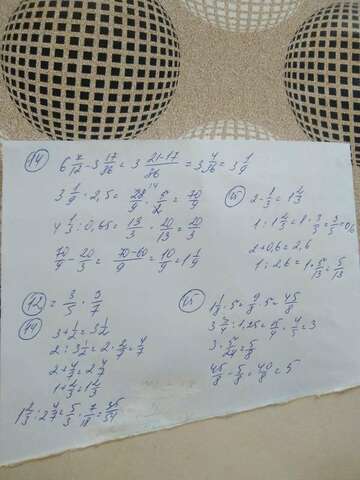 14
6 7/12 - 3 17/36 = 3 21-17/36 = 3 4/36 = 3 1/9
3 1/9 · 2,5 = 28/9 · 5/2 = 70/9
4 1/3 : 0,65 = 13/3 · 20/13 = 20/3
70/9 - 20/3 = 70-60/9 = 10/9 = 1 1/9
2 - 1/3 = 1 2/3
1 : 1 2/3 = 1 · 3/5 = 3/5 = 0,6
2 + 0,6 = 2,6
1 : 2,6 = 1 · 5/13 = 5/13
12 = 3/5 · 3/7
3 + 1/2 = 3 1/2
2 : 3 1/2 = 2 · 2/7 = 4/7
2 + 4/7 = 2 4/7
1 + 2/3 = 1 2/3
1 2/3 : 2 4/7 = 5/3 · 7/18 = 35/54
1 1/8 · 5 = 9/8 · 5 = 45/8
3 3/4 : 1,25 = 15/4 · 4/5 = 3
3 · 5/24 = 5/8
45/8 - 5/8 = 40/8 = 5